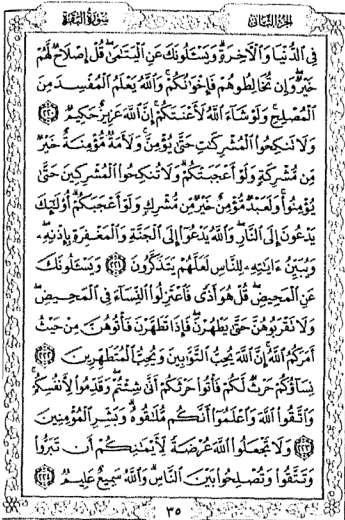 الجزء الثاني
سورة البقرة
فِي ٱلدُّنْيَا وَٱلْآخِرَةِ وَيَسْـَٔلُونَكَ عَنِ ٱلْيَتَٰمَىٰ قُلْ إِصْلَاحٌ لَّهُمْ
خَيْرٌ وَإِن تُخَالِطُوهُمْ فَإِخْوَٰنُكُمْ وَٱللَّهُ يَعْلَمُ ٱلْمُفْسِدَ مِنَ
ٱلْمُصْلِحِ وَلَوْ شَآءَ ٱللَّهُ لَأَعْنَتَكُمْ إِنَّ ٱللَّهَ عَزِيزٌ حَكِيمٌ ٢٢٠
وَلَا تَنكِحُوا۟ ٱلْمُشْرِكَٰتِ حَتَّىٰ يُؤْمِنَّ وَلَأَمَةٌ مُّؤْمِنَةٌ خَيْرٌ
مِّن مُّشْرِكَةٍ وَلَوْ أَعْجَبَتْكُمْ وَلَا تُنكِحُوا۟ ٱلْمُشْرِكِينَ حَتَّىٰ
يُؤْمِنُوا۟ وَلَعَبْدٌ مُّؤْمِنٌ خَيْرٌ مِّن مُّشْرِكٍ وَلَوْ أَعْجَبَكُمْ أُو۟لَٰٓئِكَ
يَدْعُونَ إِلَى ٱلنَّارِ وَٱللَّهُ يَدْعُوٓا۟ إِلَى ٱلْجَنَّةِ وَٱلْمَغْفِرَةِ بِإِذْنِهِۦ
وَيُبَيِّنُ ءَايَٰتِهِۦ لِلنَّاسِ لَعَلَّهُمْ يَتَذَكَّرُونَ ٢٢١ وَيَسْـَٔلُونَكَ
عَنِ ٱلْمَحِيضِ قُلْ هُوَ أَذًى فَٱعْتَزِلُوا۟ ٱلنِّسَآءَ فِي ٱلْمَحِيضِ
وَلَا تَقْرَبُوهُنَّ حَتَّىٰ يَطْهُرْنَ فَإِذَا تَطَهَّرْنَ فَأْتُوهُنَّ مِنْ حَيْثُ
أَمَرَكُمُ ٱللَّهُ إِنَّ ٱللَّهَ يُحِبُّ ٱلتَّوَّٰبِينَ وَيُحِبُّ ٱلْمُتَطَهِّرِينَ ٢٢٢
نِسَآؤُكُمْ حَرْثٌ لَّكُمْ فَأْتُوا۟ حَرْثَكُمْ أَنَّىٰ شِئْتُمْ وَقَدِّمُوا۟ لِأَنفُسِكُمْ
وَٱتَّقُوا۟ ٱللَّهَ وَٱعْلَمُوٓا۟ أَنَّكُم مُّلَٰقُوهُ وَبَشِّرِ ٱلْمُؤْمِنِينَ
٢٢٣ وَلَا تَجْعَلُوا۟ ٱللَّهَ عُرْضَةً لِّأَيْمَٰنِكُمْ أَن تَبَرُّوا۟
وَتَتَّقُوا۟ وَتُصْلِحُوا۟ بَيْنَ ٱلنَّاسِ وَٱللَّهُ سَمِيعٌ عَلِيمٌ ٢٢٤
٣٥